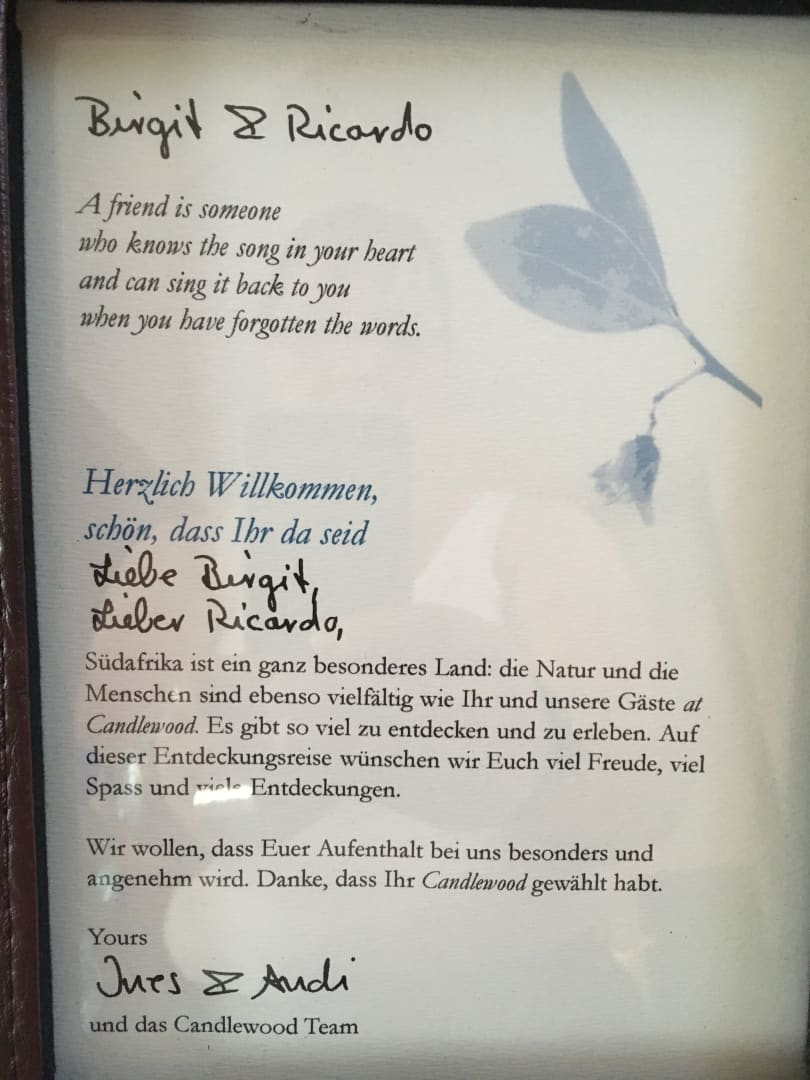 Birgit & Ricardo
A friend is someone
who knows the song in your heart
and can sing it back to you
when you have forgotten the words.
Herzlich Willkommen,
schön, dass Ihr da seid
Liebe Birgit,
Lieber Ricardo,
Südafrika ist ein ganz besonderes Land: die Natur und die
Menschen sind ebenso vielfältig wie Ihr und unsere Gäste at
Candlewood. Es gibt so viel zu entdecken und zu erleben. Auf
dieser Entdeckungsreise wünschen wir Euch viel Freude, viel
Spass und viele Entdeckungen.
Wir wollen, dass Euer Aufenthalt bei uns besonders und
angenehm wird. Danke, dass Ihr Candlewood gewählt habt.
Yours
Ines & Andi
und das Candlewood Team